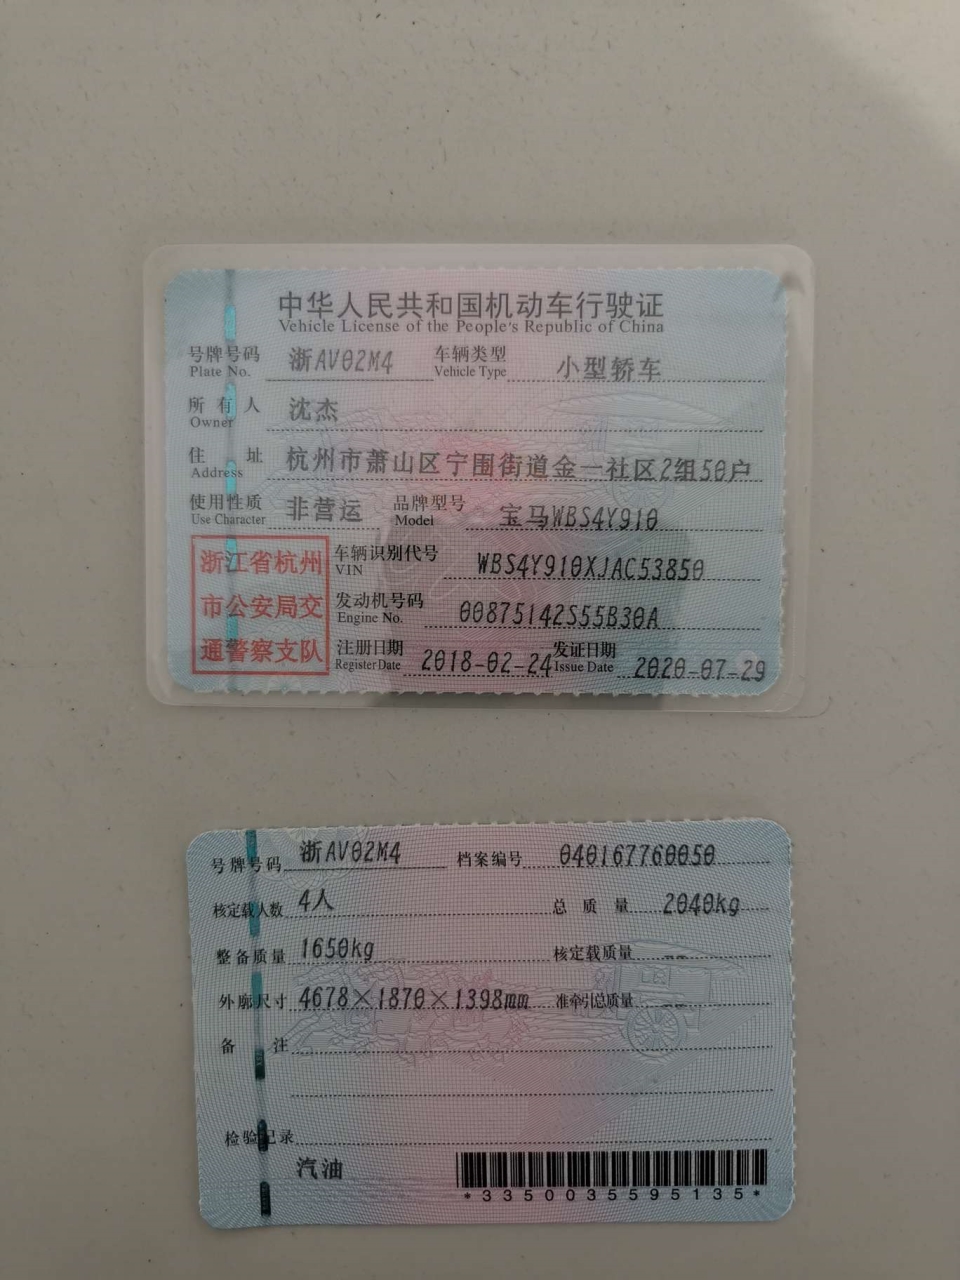 中华人民共和国机动车行驶证
Vehicle License of the People's Republic of China
号牌号码 浙AV02M4 车辆类型 小型轿车
Plate No. Vehicle Type
所有人 沈杰
Owner
住址 杭州市萧山区宁围街道金一社区2组50户
Address
使用性质 非营运 品牌型号 宝马WBS4Y910
Use Character Model
浙江省杭州
市公安局交
通警察支队
车辆识别代号 WBS4Y910XJAC53850
VIN
发动机号码 00875142S55B30A
Engine No.
注册日期 2018-02-24 发证日期 2020-07-29
Register Date Issue Date
号牌号码 浙AV02M4 档案编号 040167760050
核定载人数 4人 总质量 2040kg
整备质量 1650kg 核定载质量 --
外廓尺寸 4678×1870×1398mm 准牵引总质量 --
备注
检验记录
汽油
*3350035595135*